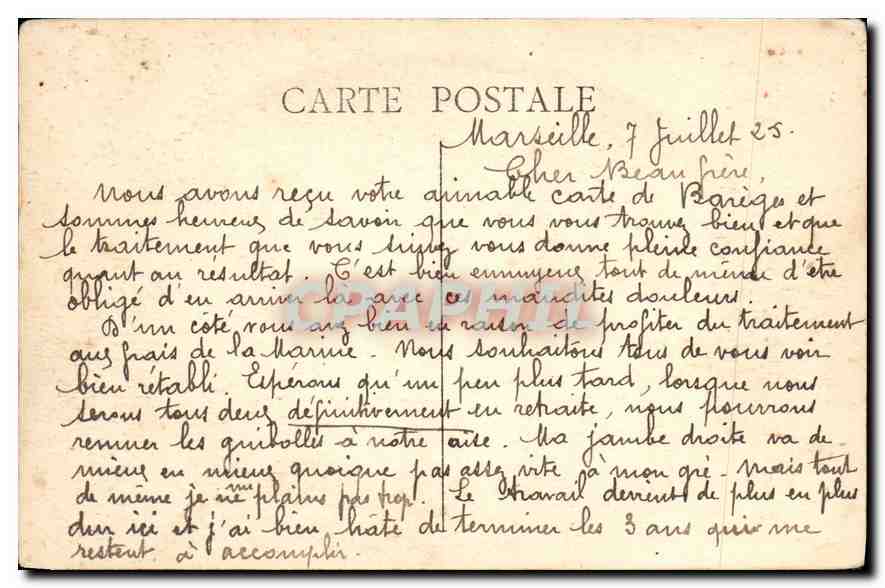 CARTE POSTALE
Marseille, 7 Juillet 25.
Cher Beau frère,
Nous avons reçu votre aimable carte de Barèges et
sommes heureux de savoir que vous vous trouvez bien et que
le traitement que vous suivez vous donne pleine confiance
quant au résultat. C'est bien ennuyeux tout de même d'être
obligé d'en arriver là avec ces maudites douleurs.
D'un côté vous avez bien eu raison de profiter du traitement
aux frais de la Marine. Nous souhaitons tous de vous voir
bien rétabli. Espérons qu'un peu plus tard, lorsque nous
serons tous deux définitivement en retraite, nous pourrons
remuer les guibolles à notre aise. Ma jambe droite va de
mieux en mieux quoique pas assez vite à mon gré. Mais tout
de même je ne me plains pas trop. Le travail devient de plus en plus
dur ici et j'ai bien hâte de terminer les 3 ans qui me
restent à accomplir.
CPAPHIL